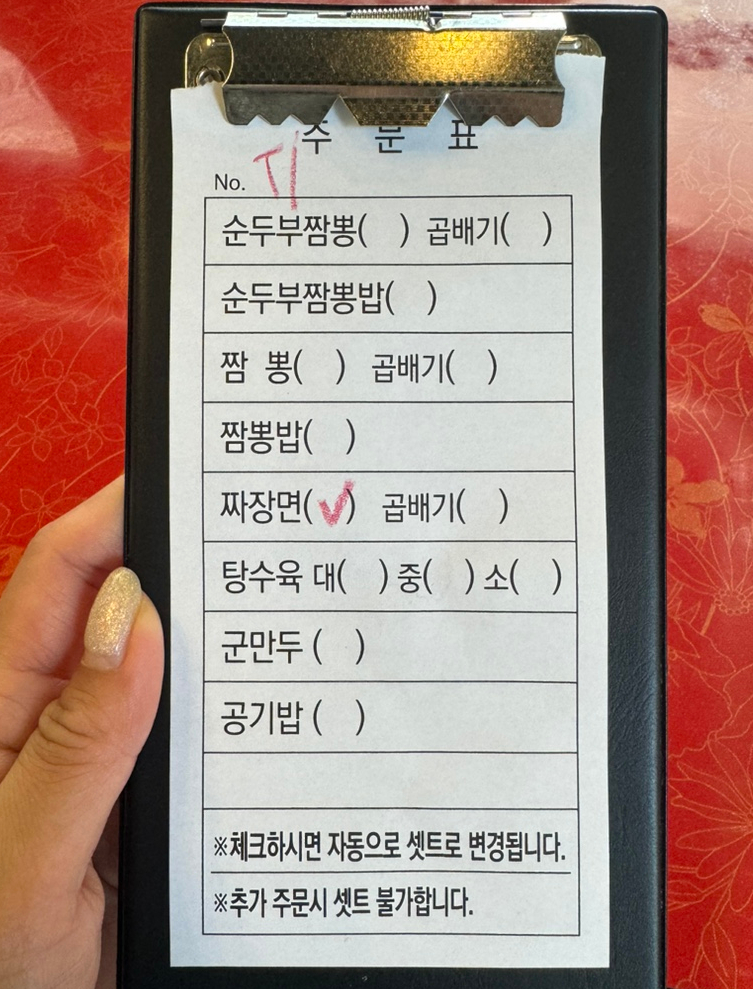 주 문 표
No.
순두부짬뽕( ) 곱배기( )
순두부짬뽕밥( )
짬 뽕( ) 곱배기( )
짬뽕밥( )
짜장면(✓) 곱배기( )
탕수육 대( ) 중( ) 소( )
군만두 ( )
공기밥 ( )
※체크하시면 자동으로 셋트로 변경됩니다.
※추가 주문시 셋트 불가합니다.